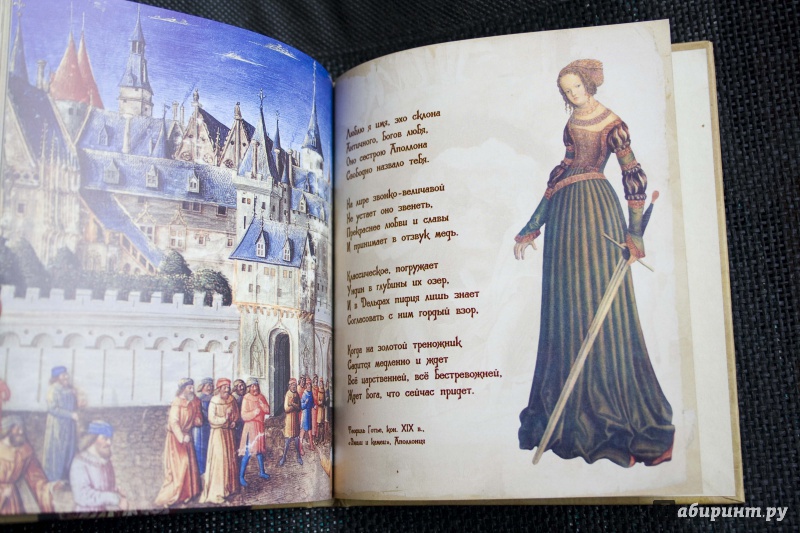 Люблю я имя, эхо склона
Античного, Богов любя,
Оно сестрою Аполлона
Свободно назвало тебя.
На лире звонко-величавой
Не устает оно звенеть,
Прекраснее любви и славы
И принимает в отзвук медь.
Классическое, погружает
Ундин в глубины их озер,
И в Дельфах пифия лишь знает
Согласовать с ним гордый взор,
Когда на золотой треножник
Садится медленно и ждет
Всё царственней, всё Бестревожней,
Ждет Бога, что сейчас придет.
Теофиль Готье, кон. XIX в.,
«Эмали и камеи», Аполлония
абиринт.ру